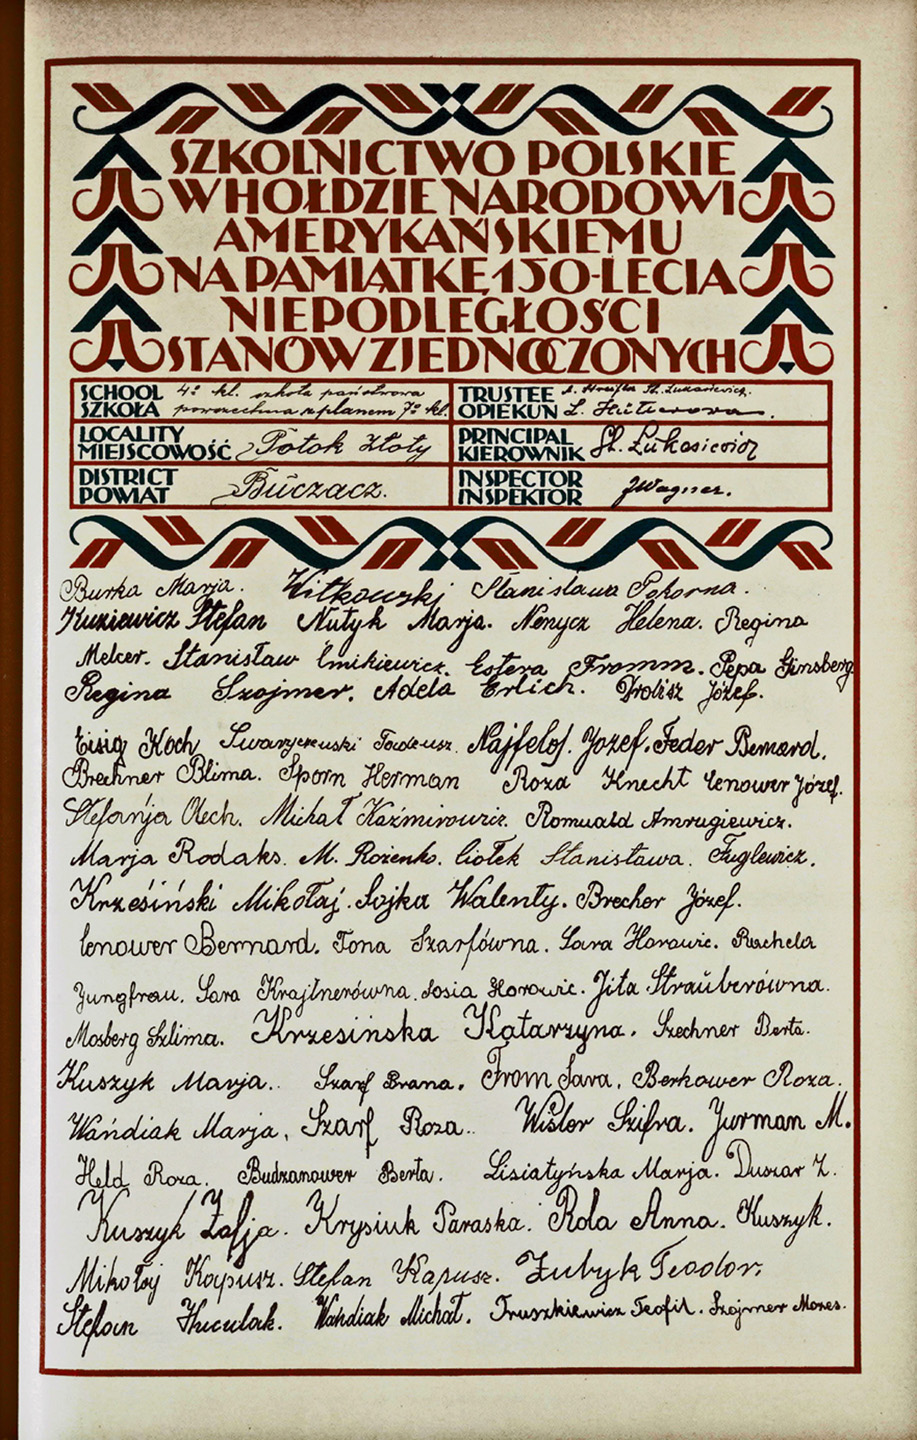 SZKOLNICTWO POLSKIE
W HOŁDZIE NARODOWI
AMERYKAŃSKIEMU
NA PAMIĄTKĘ 150-LECIA
NIEPODLEGŁOŚCI
STANÓW ZJEDNOCZONYCH
SCHOOL 4º kl. szkoła państwowa
SZKOŁA powszechna z planem 7º kl.
TRUSTEE St. Łukasiewicz.
OPIEKUN L.
LOCALITY
MIEJSCOWOŚĆ Potok Złoty
PRINCIPAL
KIEROWNIK St. Łukasiewicz
DISTRICT
POWIAT Buczacz.
INSPECTOR
INSPEKTOR JWagner.
Burka Marja. Witkowski Stanisława Pokorna.
Kuziewicz Stefan Nutyk Marja. Nenycz Helena. Regina
Melcer. Stanisław Cmikiewicz. Estera Fromm. Pepa Ginsberg
Regina Szojmer. Adela Erlich. Drolisz Józef.
Eisig Koch Swaryczewski Tadeusz. Najfelof. Jozef. Feder Bernard.
Brechner Blima. Sporn Herman Roza Knecht Cenower Józef.
Stefanja Olech. Michał Kaźmirowicz. Romuald Amrugiewicz.
Marja Rodaks. M. Rożenko. Ciołek Stanisława. Fuglewicz.
Krzesiński Mikołaj. Sojka Walenty. Brecher Józef.
Cenower Bernard. Tona Szarfówna. Sara Horowic. Rachela
Jungfrau. Sara Krajtnerówna. Sosia Horowic. Jita Strauberówna.
Mosberg Szlima. Krzesińska Katarzyna. Szechner Berta.
Kuszyk Marja. Szarf Brana. From Sara. Berkower Roza.
Wańdiak Marja, Szarf Roza. Wisler Szifra. Jurman M.
Held Roza. Budzanower Berta. Lisiatyńska Marja. Duszar Z.
Kuszyk Zofja. Krysiuk Paraska. Rola Anna. Kuszyk.
Mikołaj Kapusz. Stefan Kapusz. Zubyk Teodor.
Stefan Huculak. Wańdiak Michał. Truszkiewicz Teofil. Szojmer Mozes.